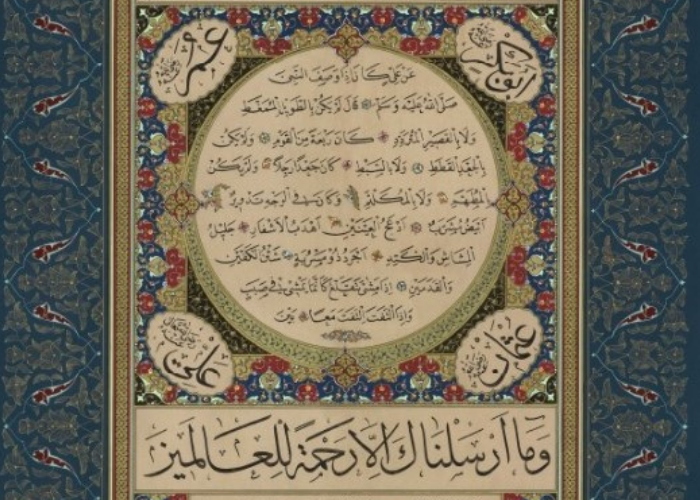 ابو بكر
عمر
عن علي كان اذا وصف النبي
صلى الله عليه وسلم قال لم يكن بالطويل الممغط
ولا بالقصير المتردد كان ربعة من القوم ولم يكن
بالجعد القطط ولا بالسبط كان جعدا رجلا ولم يكن
بالمطهم ولا بالمكلثم وكان في الوجه تدوير
ابيض مشرب ادعج العينين اهدب الاشفار جليل
المشاش والكتد اجرد ذو مسربة شثن الكفين
والقدمين اذا مشى تقلع كانما يمشي في صبب
واذا التفت التفت معا بين
عثمان
علي
وما ارسلناك الا رحمة للعالمين